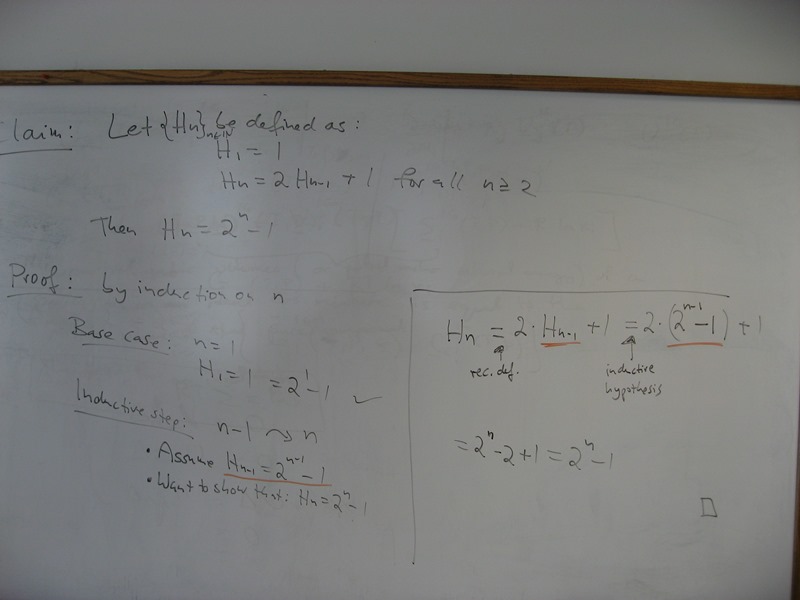 Claim: Let {Hn}n∈ℕ be defined as:
H₁ = 1
Hn = 2 Hn-1 + 1 for all n ≥ 2
Then Hn = 2ⁿ - 1
Proof: by induction on n
Base case: n = 1
H₁ = 1 = 2¹ - 1 ✓
Inductive step: n-1 ⤳ n
• Assume Hn-1 = 2ⁿ⁻¹ - 1
• Want to show that: Hn = 2ⁿ - 1
Hn = 2 · Hn-1 + 1 = 2 · (2ⁿ⁻¹ - 1) + 1
rec. def. inductive
hypothesis
= 2ⁿ - 2 + 1 = 2ⁿ - 1
□